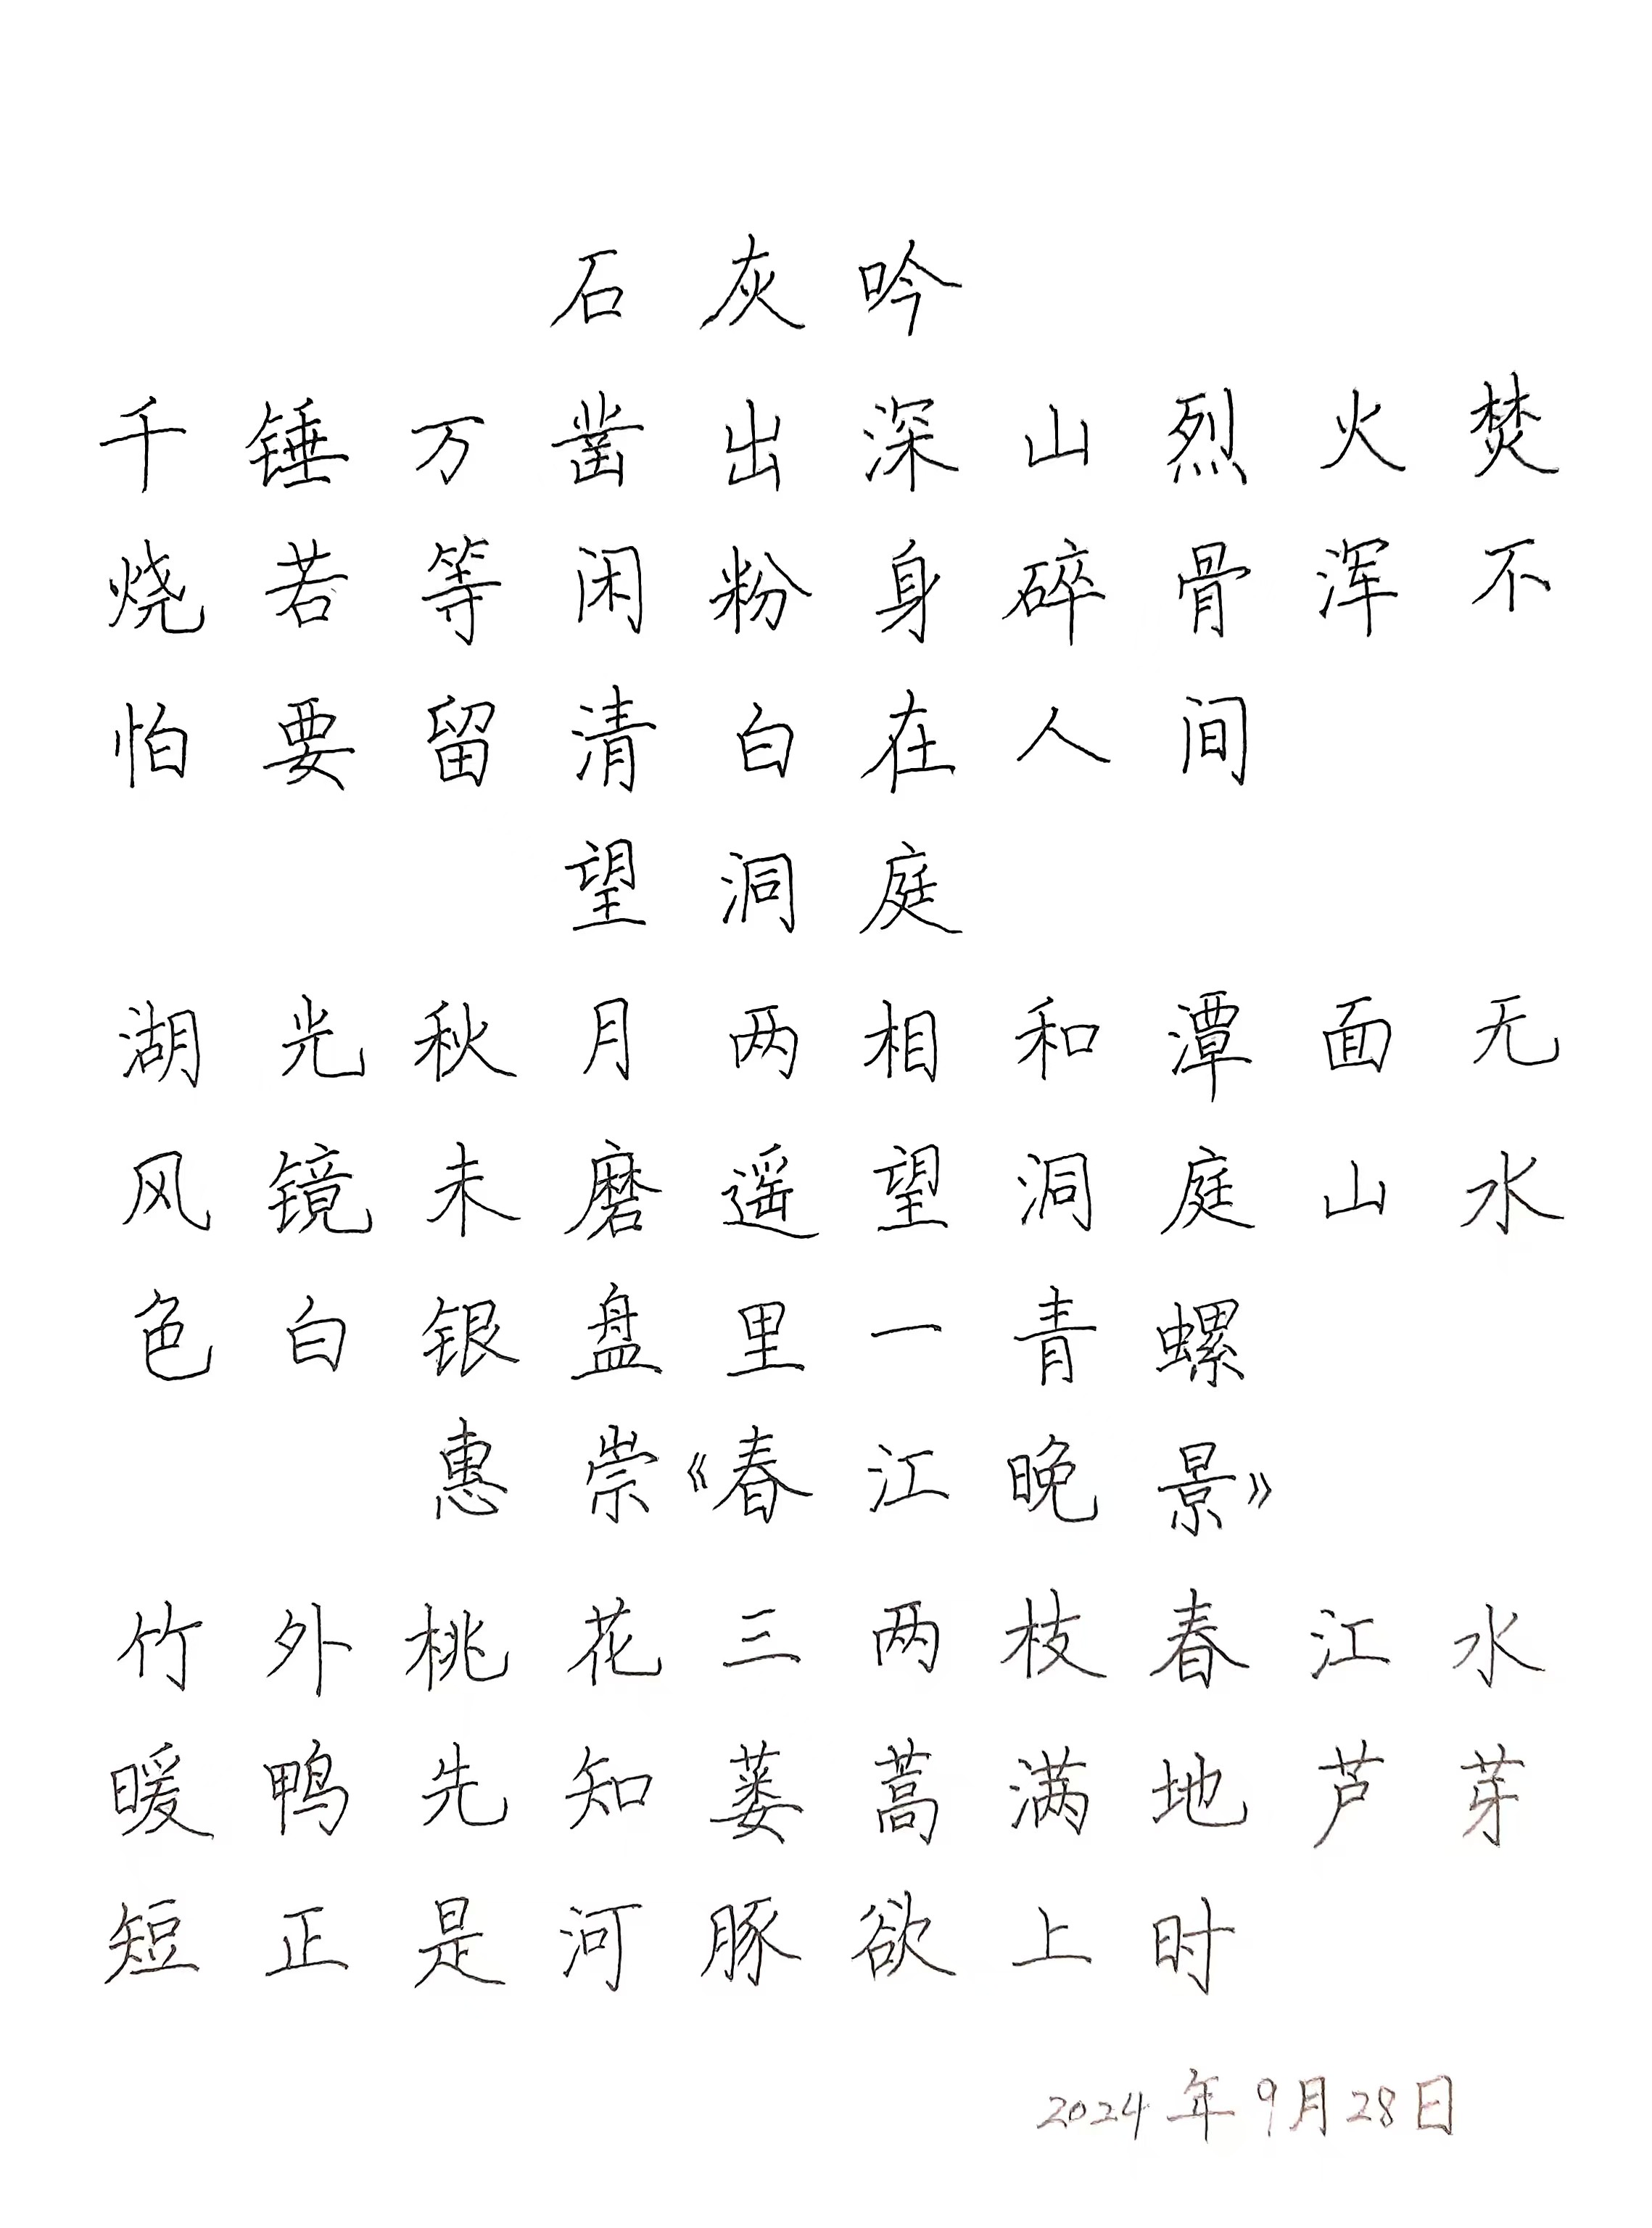 石灰吟
千锤万凿出深山烈火焚
烧若等闲粉身碎骨浑不
怕要留清白在人间
望洞庭
湖光秋月两相和潭面无
风镜未磨遥望洞庭山水
色白银盘里一青螺
惠崇《春江晚景》
竹外桃花三两枝春江水
暖鸭先知蒌蒿满地芦芽
短正是河豚欲上时
2024年9月28日